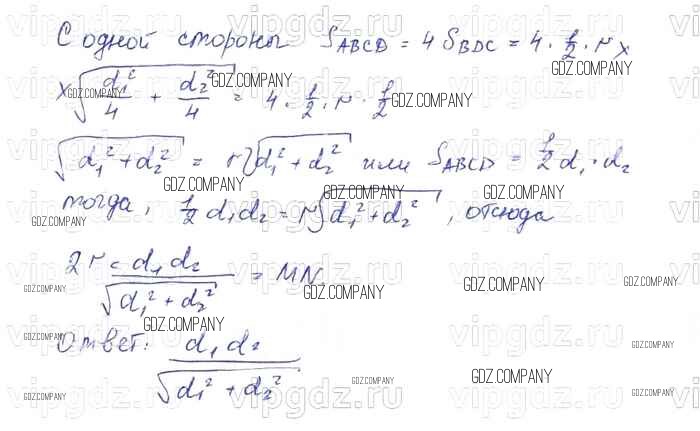 С одной стороны S_ABCD = 4 S_BDC = 4 · 1/2 · r ×
× √(d₁²/4 + d₂²/4) = 4 · 1/2 · r · 1/2
√(d₁² + d₂²) = r√(d₁² + d₂²) или S_ABCD = 1/2 d₁ · d₂
тогда, 1/2 d₁d₂ = r√(d₁² + d₂²), отсюда
2r = d₁d₂/√(d₁² + d₂²) = MN
Ответ: d₁d₂/√(d₁² + d₂²)
GDZ.COMPANY
vipgdz.ru